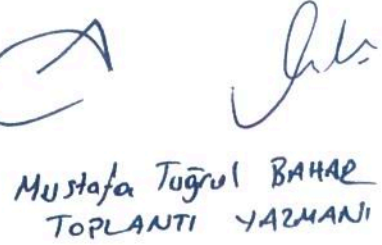 Mustafa Tuğrul BAHAR
TOPLANTI YAZMANI